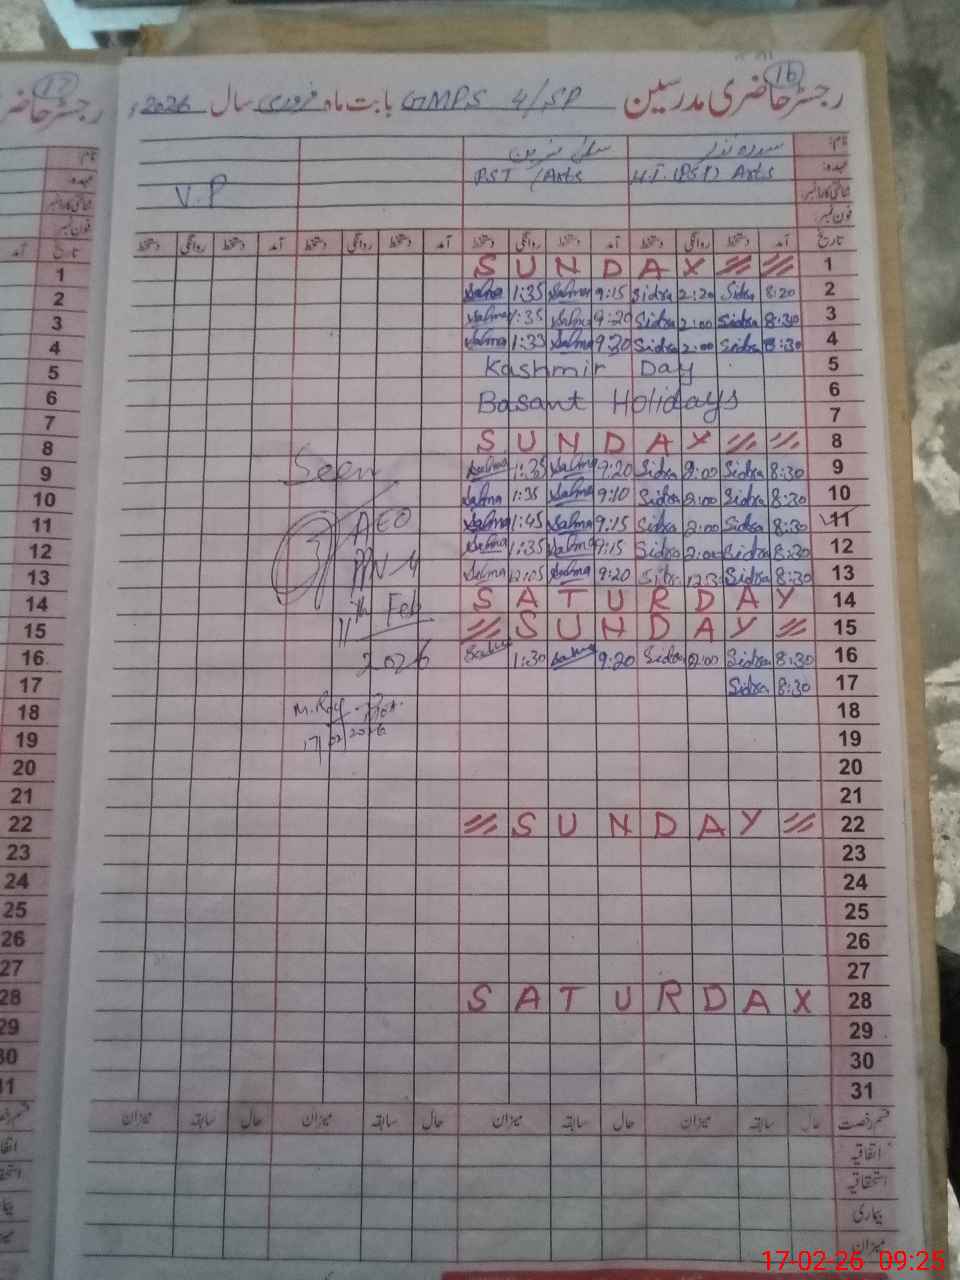 16
رجسٹر حاضری مدرسین GMPS 4/SP بابت ماہ فروری سال 2026ء
17
رجسٹر حاضر
نام:
عہدہ:
فون نمبر
سدرہ نذیر
PST / Arts
H.T. (PST) Arts
V.P
تاریخ آمد دستخط روانگی دستخط آمد دستخط روانگی دستخط آمد دستخط روانگی دستخط آمد دستخط روانگی دستخط
SUNDAY 1
Salma 1:35 Salma 9:15 Sidra 2:20 Sidra 8:20 2
Salma 1:35 Salma 9:20 Sidra 2:00 Sidra 8:30 3
Salma 1:35 Salma 9:20 Sidra 2:00 Sidra 8:30 4
Kashmir Day 5
Basant Holidays 6
7
SUNDAY 8
Salma 1:35 Salma 9:20 Sidra 2:00 Sidra 8:30 9
Salma 1:35 Salma 9:10 Sidra 2:00 Sidra 8:30 10
Salma 1:45 Salma 9:15 Sidra 2:00 Sidra 8:30 11
Salma 1:35 Salma 9:15 Sidra 2:00 Sidra 8:30 12
Salma 12:05 Salma 9:20 Sidra 12:3 Sidra 8:30 13
SATURDAY 14
SUNDAY 15
Salma 1:30 Salma 9:20 Sidra 2:00 Sidra 8:30 16
Sidra 8:30 17
18
19
20
21
SUNDAY 22
23
24
25
26
27
SATURDAY 28
29
30
31
Seen
AEO
11th Feb
2026
17/02/2026
قسم رخصت حال سابقہ میزان حال سابقہ میزان حال سابقہ میزان حال سابقہ میزان
اتفاقیہ
استحقاقیہ
بیماری
میزان
17-02-26 09:25